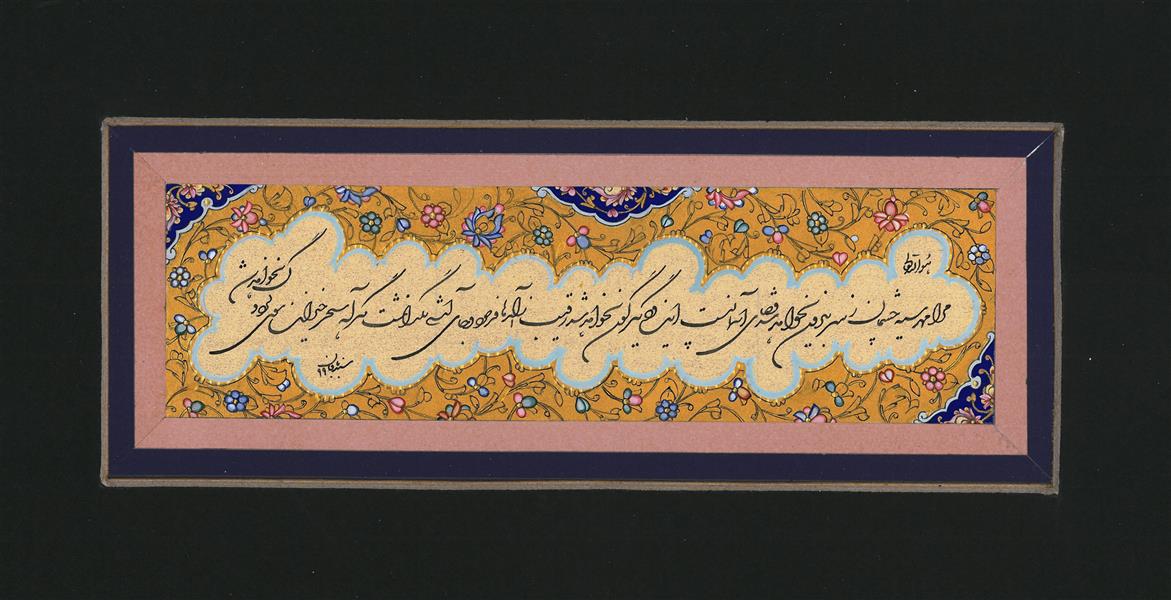 مرا مهر سیه چشمان ز سر بیرون نخواهد شد قضای آسمانست این و دیگرگون نخواهد شد رقیب آزارها فرمود و جای آشتی نگذاشت مگر آه سحرخیزان سوی گردون نخواهد شد